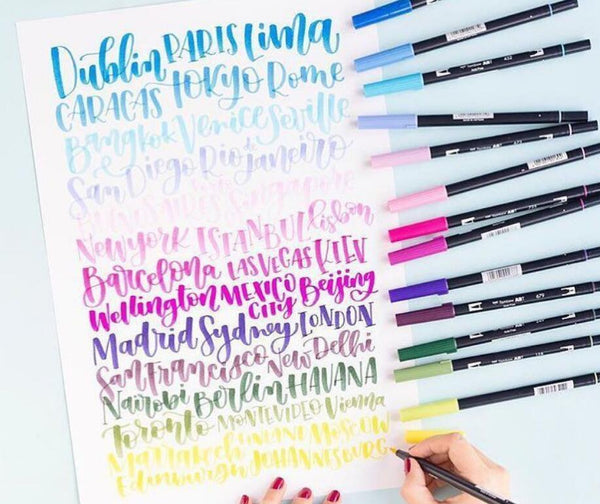 Dublin PARIS Lima
CARACAS TOKYO Rome
Bangkok Venice Seville
San Diego Rio de Janeiro
BUENOS AIRES Singapore
New York ISTANBUL Lisbon
Barcelona LAS VEGAS KIEV
Wellington MEXICO CITY Beijing
Madrid Sydney LONDON
San Francisco New Delhi
Nairobi Berlin HAVANA
Toronto MONTEVIDEO Vienna
Marrakech Moscow
Edinburgh JOHANNESBURG